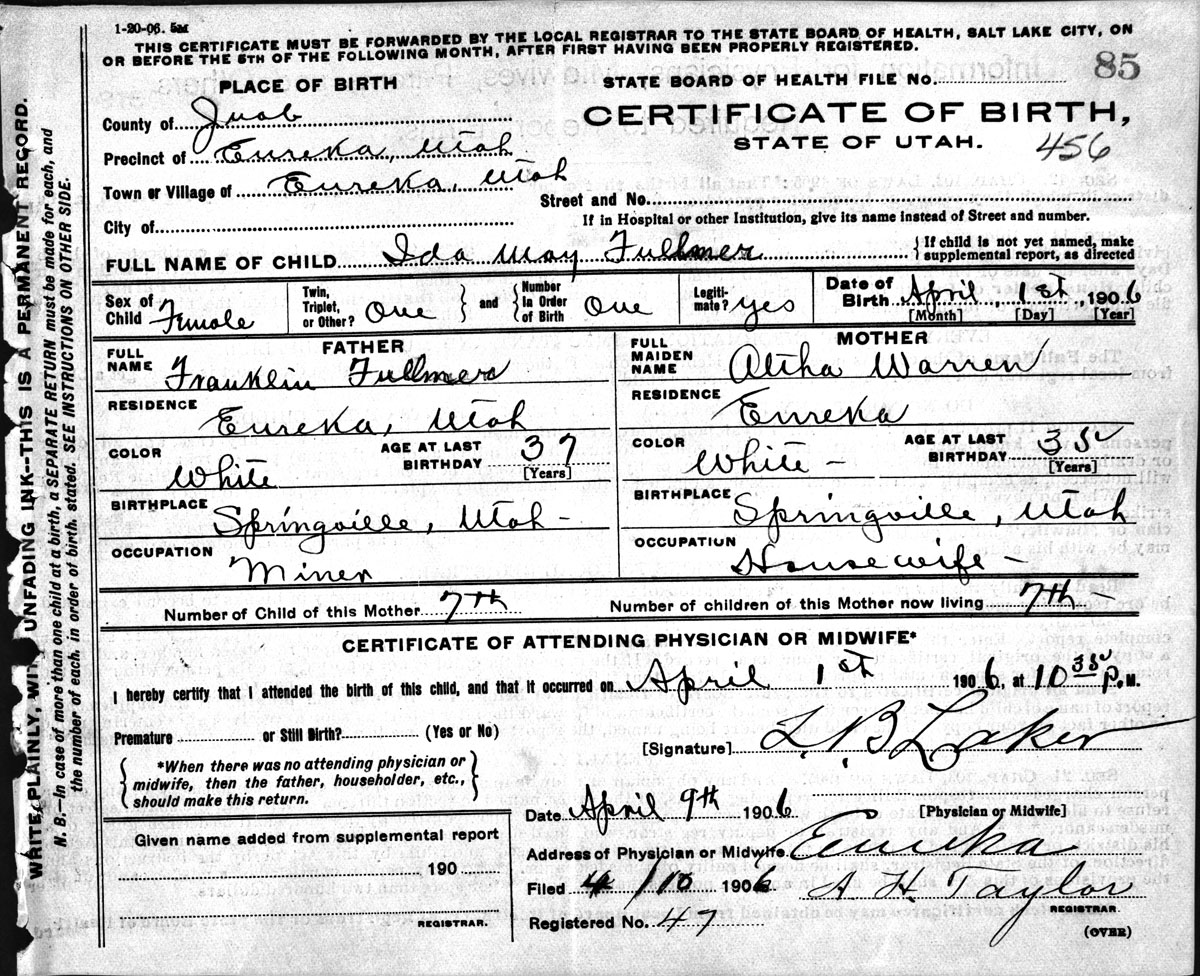 1-20-06. 5M
THIS CERTIFICATE MUST BE FORWARDED BY THE LOCAL REGISTRAR TO THE STATE BOARD OF HEALTH, SALT LAKE CITY, ON
OR BEFORE THE 5TH OF THE FOLLOWING MONTH, AFTER FIRST HAVING BEEN PROPERLY REGISTERED.
PLACE OF BIRTH
STATE BOARD OF HEALTH FILE NO. 85
County of Juab
CERTIFICATE OF BIRTH,
STATE OF UTAH. 456
Precinct of Eureka, Utah
Town or Village of Eureka, Utah
Street and No.
City of
If in Hospital or other Institution, give its name instead of Street and number.
FULL NAME OF CHILD Ida May Fullmer
{If child is not yet named, make
supplemental report, as directed
Sex of
Child Female
Twin,
Triplet,
or Other? One } and { Number
In Order
of Birth One
Legiti-
mate? yes
Date of
Birth April, 1st, 1906
[Month] [Day] [Year]
FATHER
FULL
NAME Franklin Fullmer
RESIDENCE
Eureka, Utah
COLOR
White
AGE AT LAST
BIRTHDAY 37
[Years]
BIRTHPLACE
Springville, Utah -
OCCUPATION
Miner
MOTHER
FULL
MAIDEN
NAME Altha Warren
RESIDENCE
Eureka
COLOR
White -
AGE AT LAST
BIRTHDAY
[Years]
BIRTHPLACE
Springville, Utah
OCCUPATION
Housewife -
Number of Child of this Mother 7th
Number of children of this Mother now living 7th -
CERTIFICATE OF ATTENDING PHYSICIAN OR MIDWIFE*
I hereby certify that I attended the birth of this child, and that it occurred on April 1st 1906, at 10 P.M.
Premature or Still Birth? (Yes or No)
[Signature] L. B. Laker
{ *When there was no attending physician or
midwife, then the father, householder, etc.,
should make this return. }
Date April 9th 1906
[Physician or Midwife]
Given name added from supplemental report
190
REGISTRAR.
Address of Physician or Midwife Eureka
Filed 4/10 1906 A H. Taylor
REGISTRAR.
Registered No. 47
(OVER)
WRITE PLAINLY, WITH UNFADING INK--THIS IS A PERMANENT RECORD.
N. B.--In case of more than one child at a birth, a SEPARATE RETURN must be made for each, and
the number of each, in order of birth, stated. SEE INSTRUCTIONS ON OTHER SIDE.